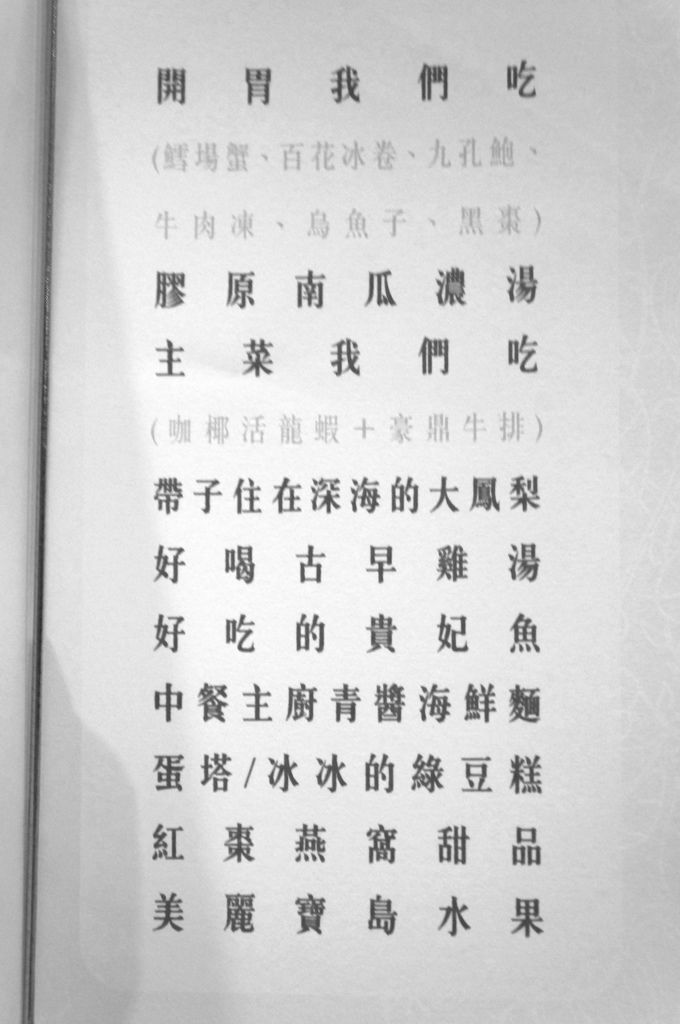 開胃我們吃
(鱈場蟹、百花冰卷、九孔鮑、
牛肉凍、烏魚子、黑棗)
膠原南瓜濃湯
主菜我們吃
(咖椰活龍蝦+豪鼎牛排)
帶子住在深海的大鳳梨
好喝古早雞湯
好吃的貴妃魚
中餐主廚青醬海鮮麵
蛋塔/冰冰的綠豆糕
紅棗燕窩甜品
美麗寶島水果